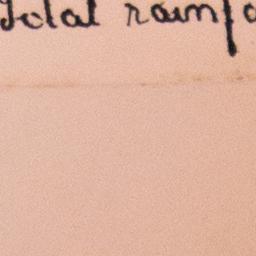 Total rainfa